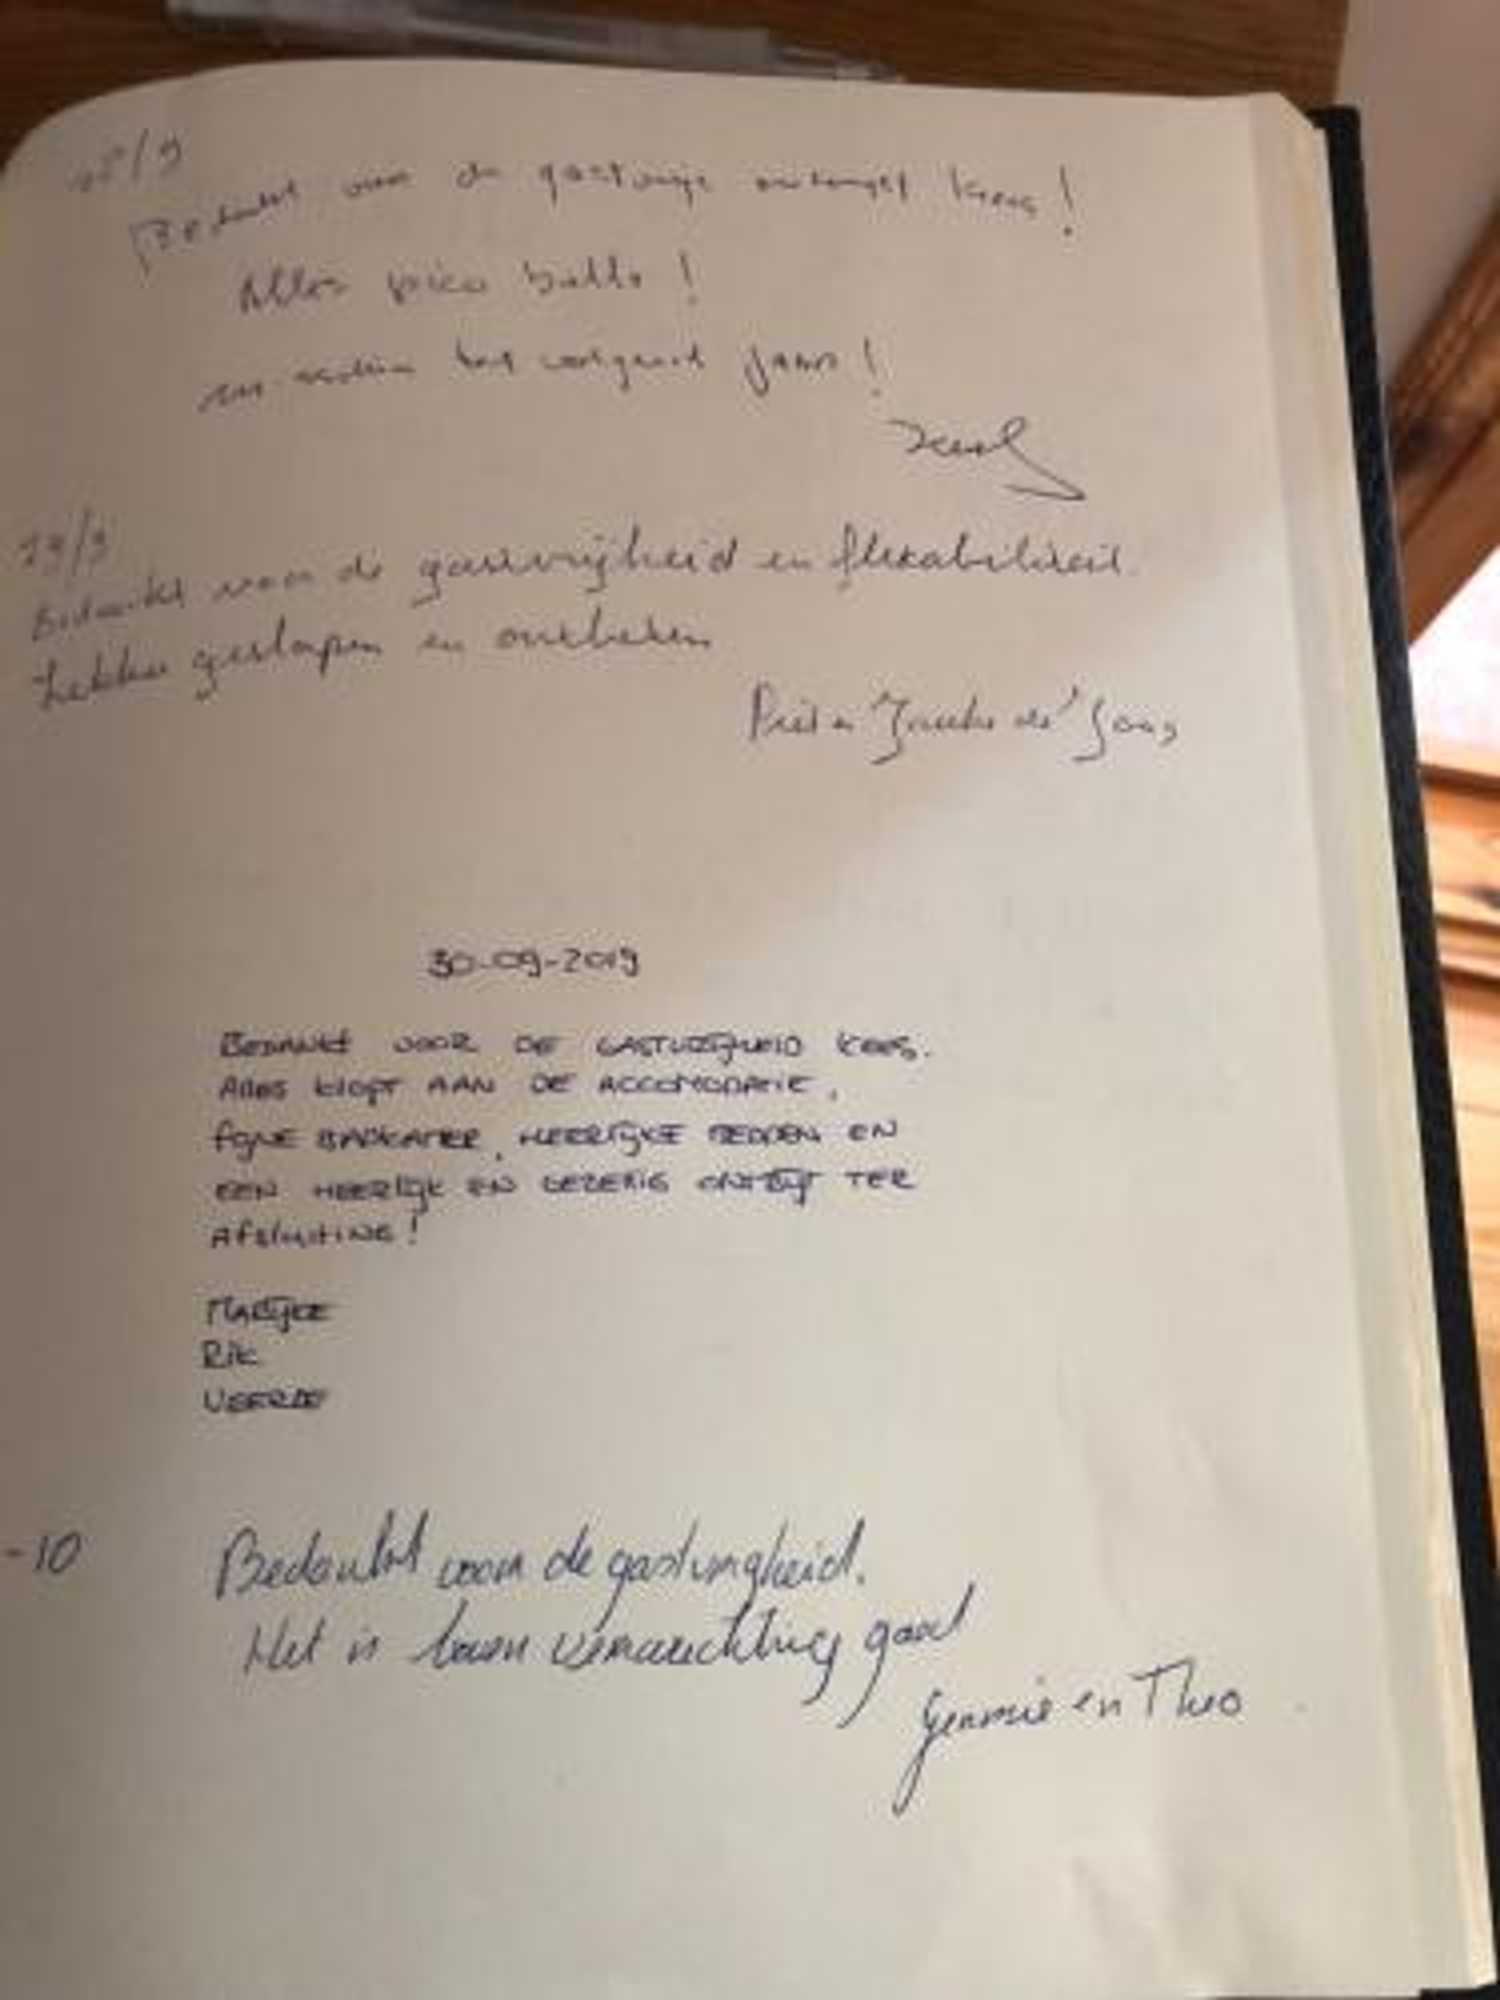 Bedankt voor de gastvrije ontvangst Kees!
Alles pico bello!
tot volgend jaar!
29/9
Bedankt voor de gastvrijheid en flexabiliteit.
Lekker geslapen en ontbeten
Piet en Jannke de Jong
30-09-2019
BEDANKT VOOR DE GASTVRIJHEID KEES.
ALLES KLOPT AAN DE ACCOMODATIE,
FIJNE BADKAMER, HEERLIJKE BEDDEN EN
EEN HEERLIJK EN GEZELLIG ONTBIJT TER
AFSLUITING!
MARIJKE
RIK
-10
Bedankt voor de gastvrijheid.
Het is boven verwachting goed
en Theo